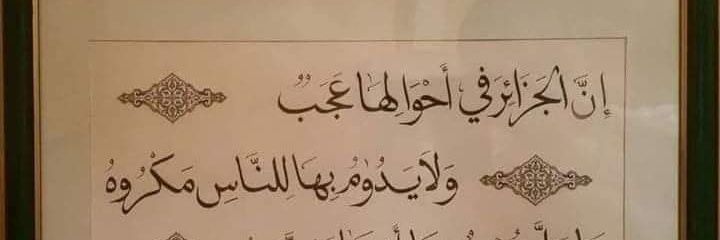 إِنَّ الجَزَائِرَ في أَحْوَالِهَا عَجَبٌ
وَلَا يَدُومُ بِهَا لِلنَّاسِ مَكْرُوهُ